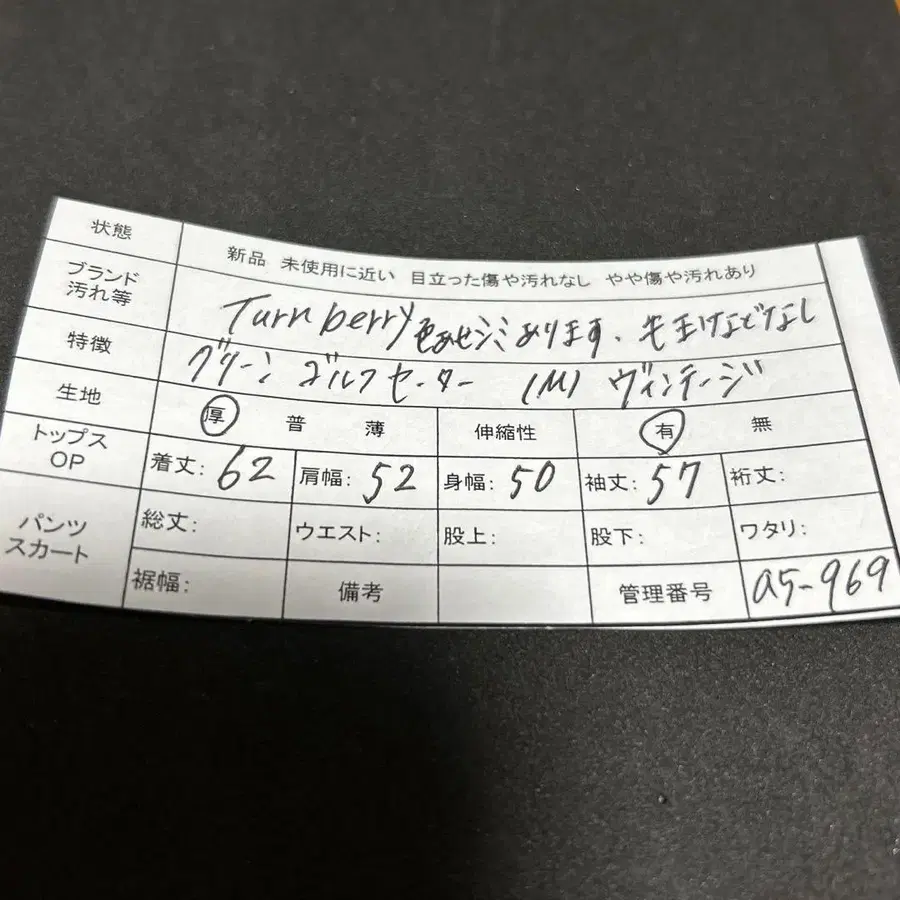 状態 新品 未使用に近い 目立った傷や汚れなし やや傷や汚れあり
ブランド 汚れ等 Turnberry 色あせシミあります、毛玉けなどなし
特徴 グリーン ゴルフセーター (M) ヴィンテージ
生地 厚 普 薄 伸縮性 有 無
トップス OP 着丈: 62 肩幅: 52 身幅: 50 袖丈: 57 裄丈:
パンツ スカート 総丈: ウエスト: 股上: 股下: ワタリ:
裾幅: 備考 管理番号 a5-969